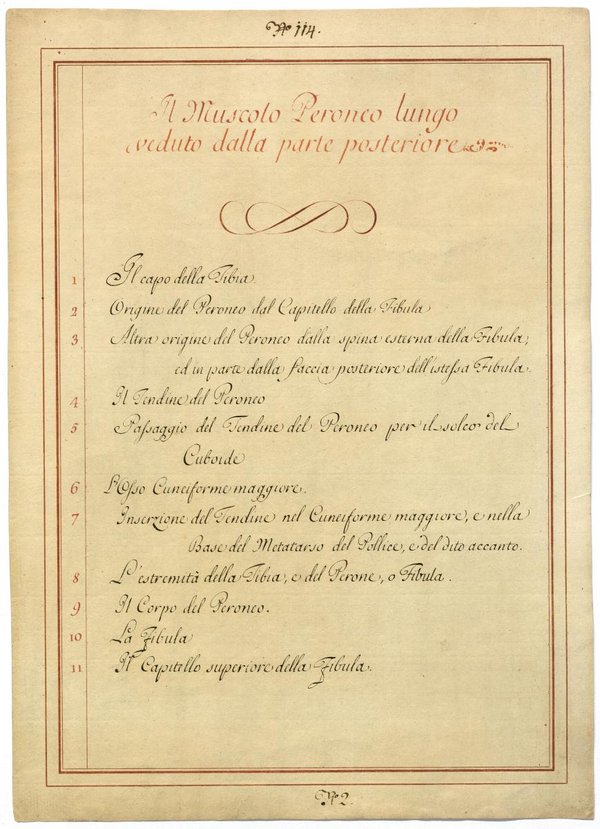 No 114.
Il Muscolo Peroneo lungo
veduto dalla parte posteriore
1 Il capo della Tibia.
2 Origine del Peroneo dal Capitello della Fibula
3 Altra origine del Peroneo dalla spina esterna della Fibula;
ed in parte dalla faccia posteriore dell'istessa Fibula.
4 Il Tendine del Peroneo
5 Passaggio del Tendine del Peroneo per il solco del
Cuboide
6 L'Osso Cuneiforme maggiore.
7 Inserzione del Tendine nel Cuneiforme maggiore, e nella
Base del Metatarso del Pollice, e del dito accanto.
8 L'estremità della Tibia, e del Perone, o Fibula.
9 Il Corpo del Peroneo.
10 La Fibula
11 Il Capitello superiore della Fibula.
No 2.